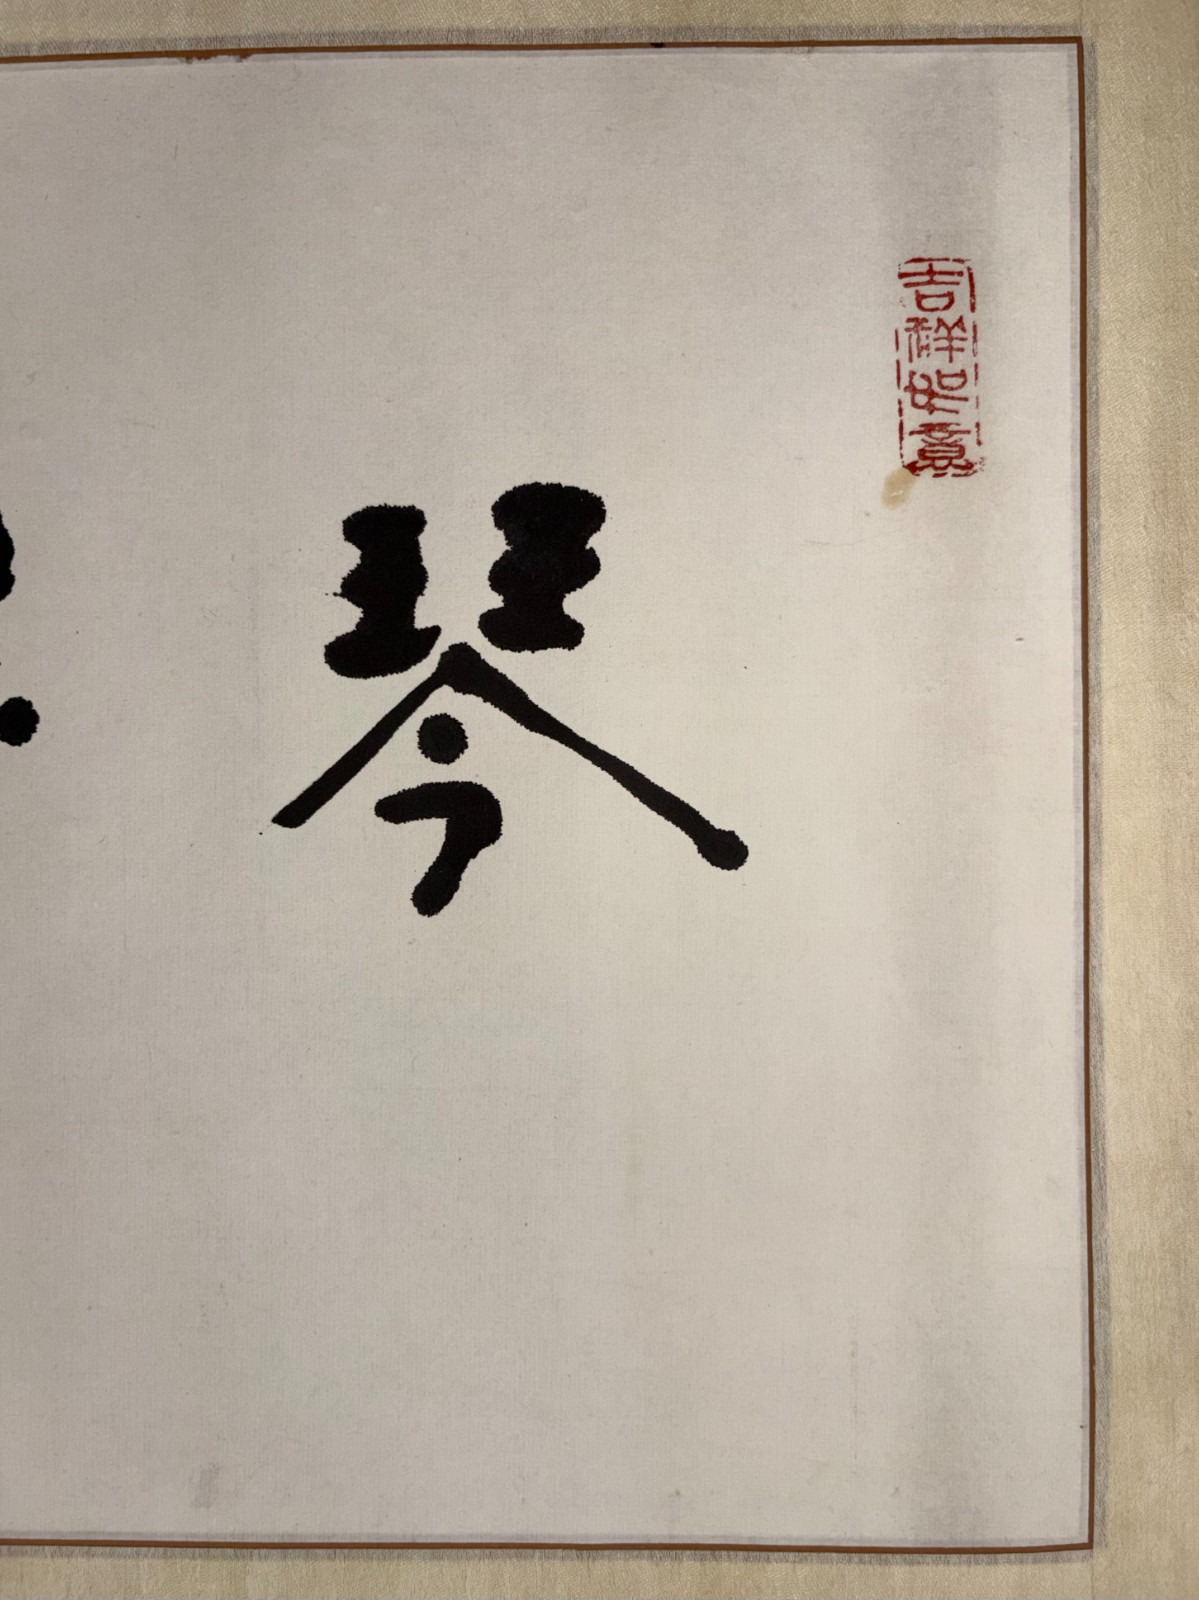 吉祥如意
琴